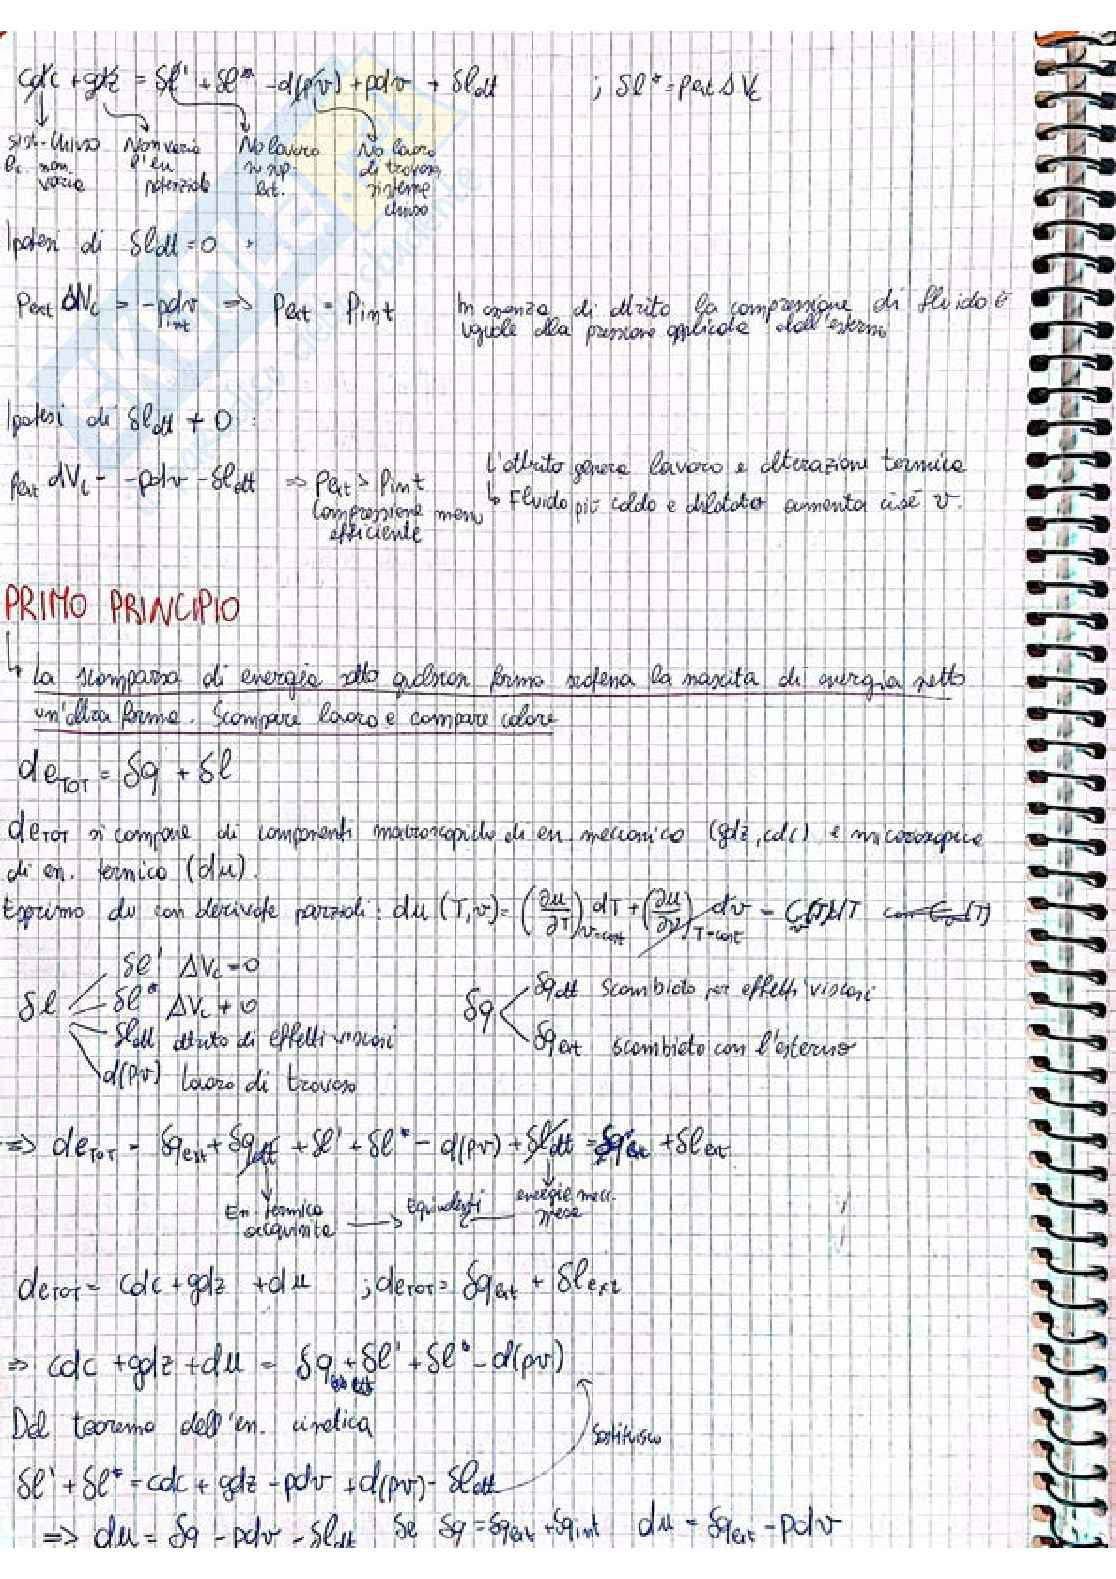 cdc + gdz = δl' + δl* - d(pv) + pdv + δl_att ; δl* = p_ext ΔV_c
sist. chiuso Non varia No lavoro No lavoro
Ec non l'en su sup. di travaso
varia potenziale ext. sistema
chiuso
Ipotesi di δl_att = 0 :
p_ext ΔV_c = -pdv_int => p_ext = p_int In assenza di attrito la compressione di fluido è
uguale alla pressione applicata dall'esterno
Ipotesi di δl_att ≠ 0 :
p_ext dV_c = -pdv - δl_att => p_ext > p_int L'attrito genera lavoro e alterazione termica
compressione meno ↳ Fluido più caldo e dilatato aumenta cioè v.
efficiente
PRIMO PRINCIPIO
↳ La scomparsa di energia sotto qualsiasi forma la nascita di energia sotto
un'altra forma. Scompare lavoro e compare calore
de_TOT = δq + δl
de_TOT si compone di componenti macroscopiche di en. meccanica (gdz, cdc) e microscopica
di en. termica (du).
Esprimo du con derivate parziali: du (T,v) = (∂u/∂T)_v=cost dT + (∂u/∂v)_T=cost dv = C_v(T)dT
δl
δl' ΔV_c = 0
δl* ΔV_c ≠ 0
δl_att attrito di effetti viscosi
d(pv) lavoro di travaso
δq
δq_att scambiato per effetti viscosi
δq_ext scambiato con l'esterno
=> de_TOT = δq_ext + δq_att + δl' + δl* - d(pv) + δl_att = δq_ext + δl_ext
En. termica → Equivalenti energia mecc.
acquisita spesa
de_TOT = cdc + gdz + du ; de_TOT = δq_ext + δl_ext
=> cdc + gdz + du = δq_ext + δl' + δl* - d(pv)
Dal teorema dell'en. cinetica
Sostituisco
δl' + δl* = cdc + gdz - pdv + d(pv) - δl_att
=> du = δq - pdv - δl_att Se δq = δq_ext + δq_int du = δq_ext - pdv